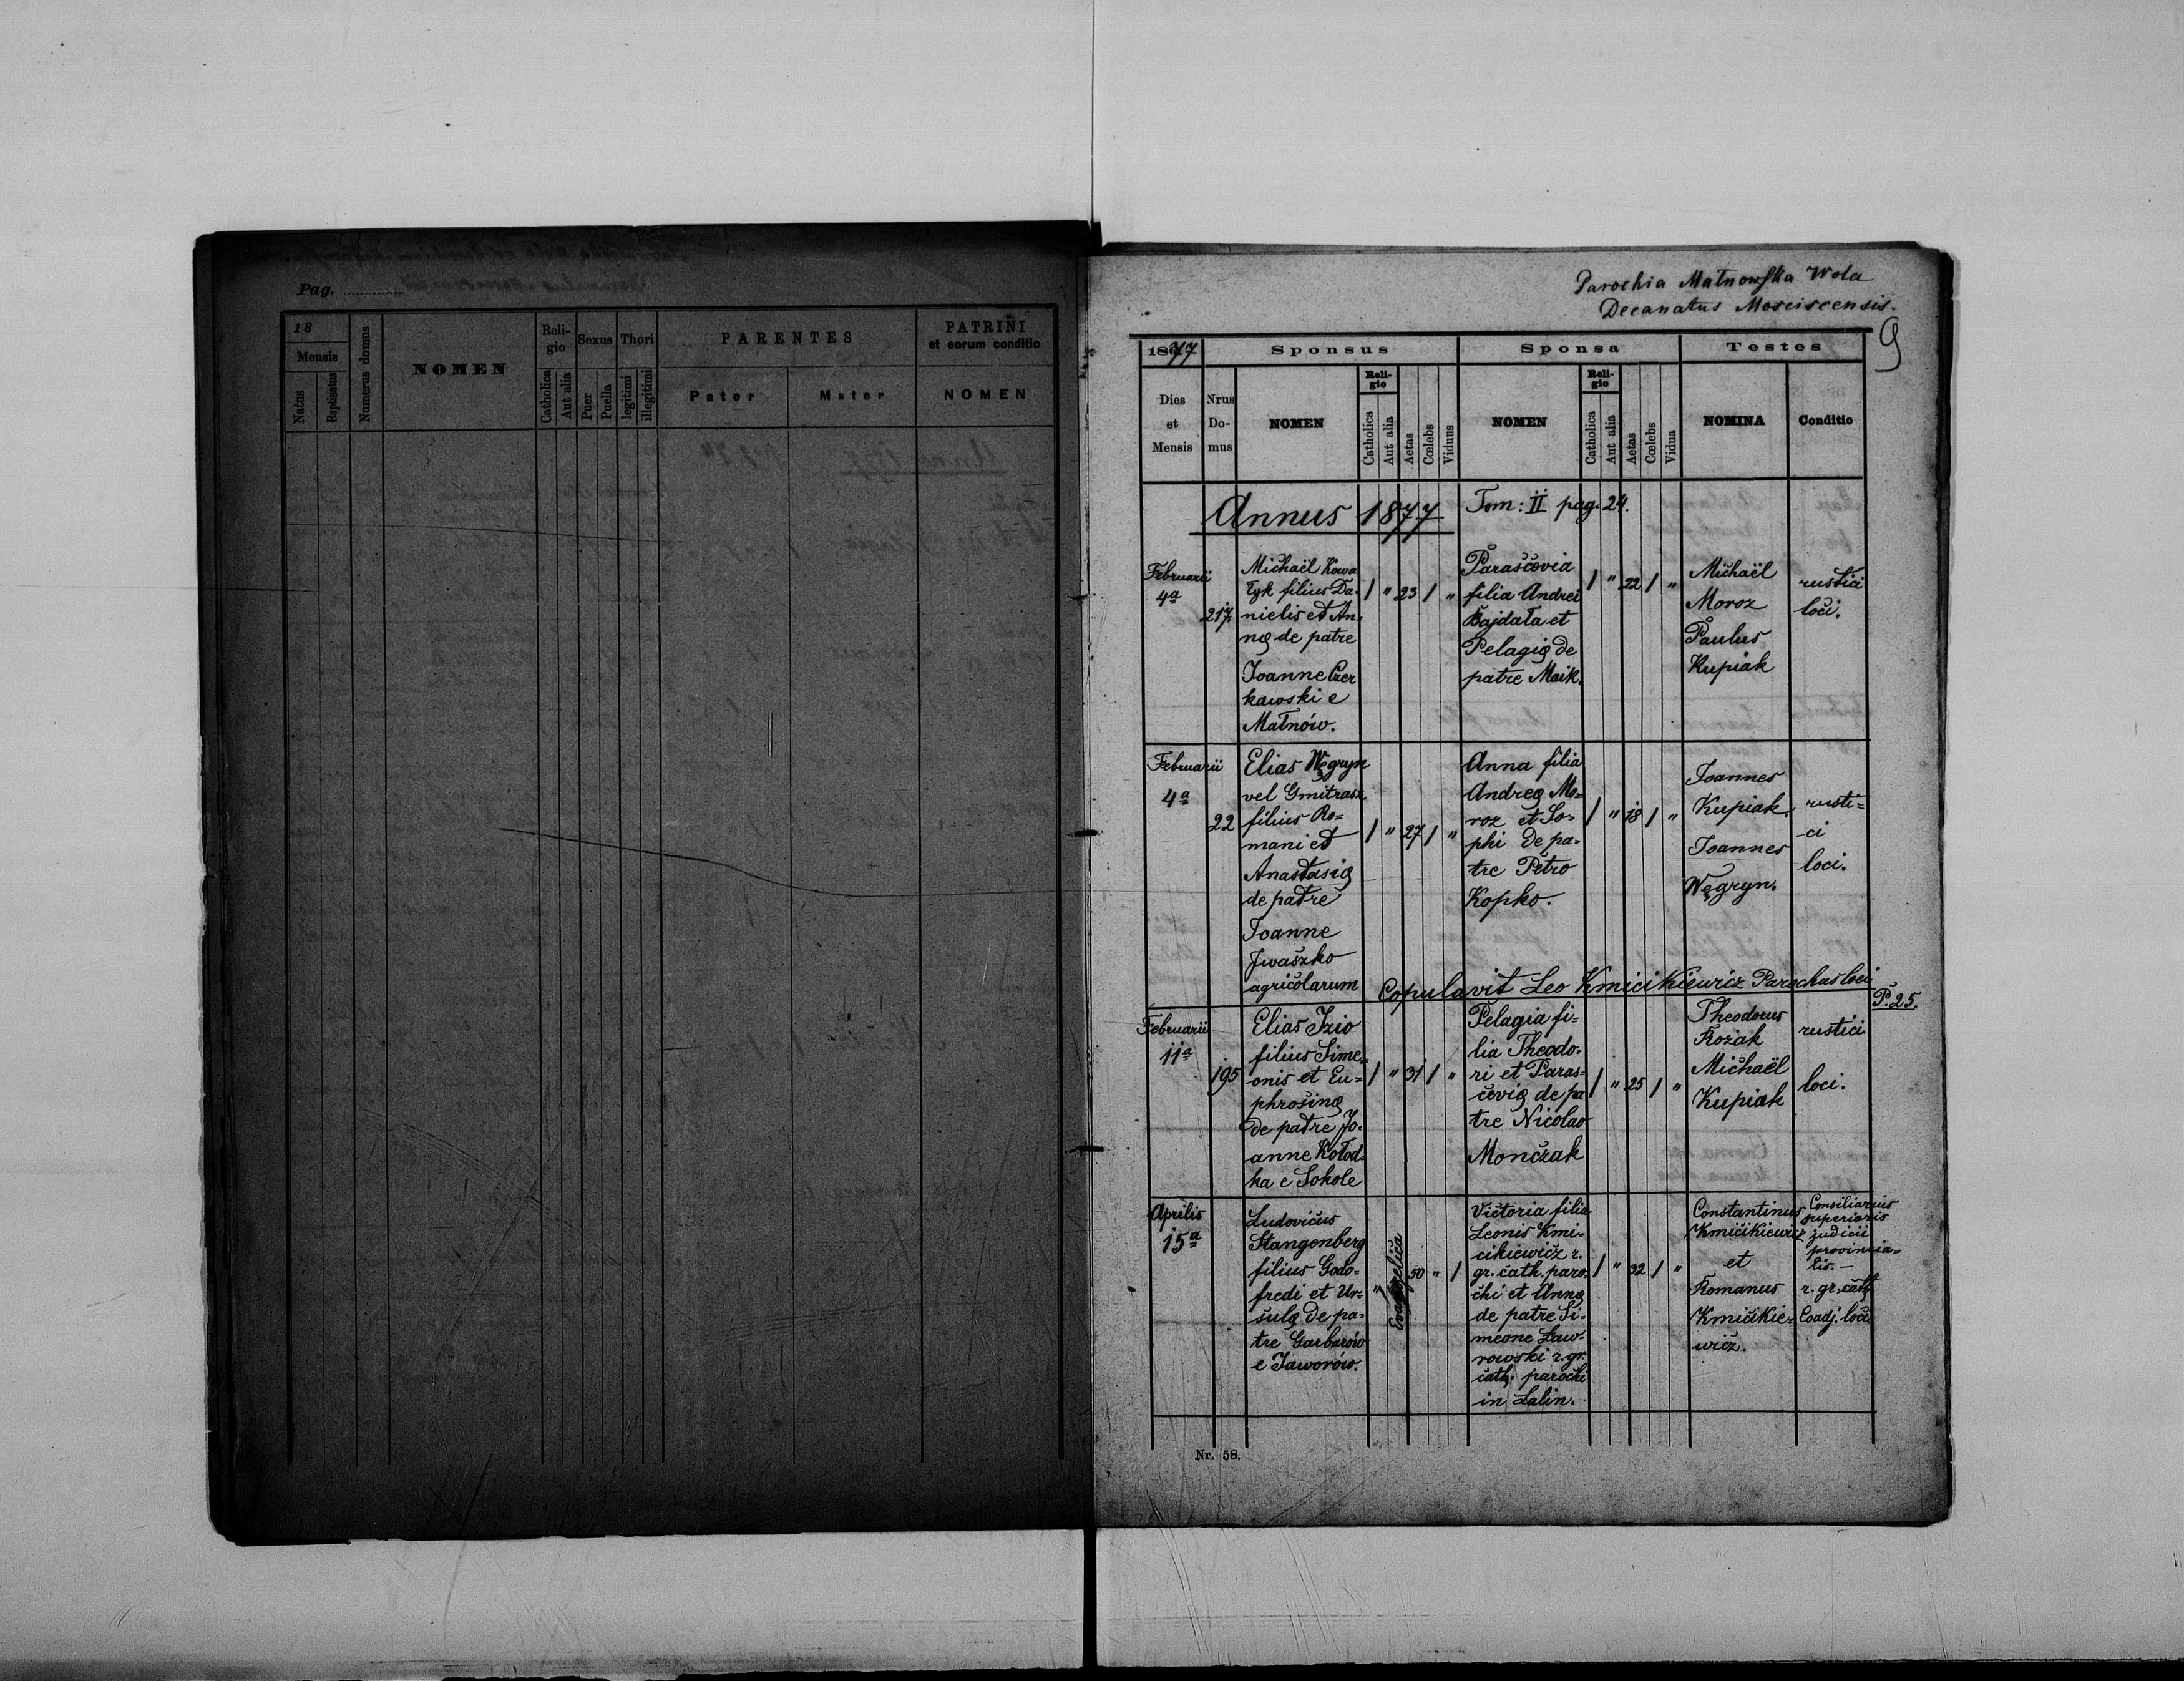 Pag.
18
Mensis
Natus
Baptisatus
Numerus domus
NOMEN
Reli-
gio
Catholica
Aut alia
Sexus
Puer
Puella
Thori
legitimi
illegitimi
PARENTES
Pater
Mater
PATRINI
et eorum conditio
NOMEN
Parochia Małnowska Wola
Decanatus Mosciscensis.
9
1877
Dies
et
Mensis
Sponsus
Nrus
Do-
mus
NOMEN
Reli-
gio
Catholica
Aut alia
Aetas
Cœlebs
Viduus
Sponsa
NOMEN
Reli-
gio
Catholica
Aut alia
Aetas
Cœlebs
Vidua
Testes
NOMINA
Conditio
Annus 1877 Tom: II pag. 24.
Februarii
4a
217
Michaël Kowa
łyk filius Da-
nielis et An-
nę de patre
Joanne Czer
kawski e
Małnów.
/ " 23 / "
Parascovia
filia Andrei
Bajdała et
Pelagię de
patre Maik.
/ " 22 / "
Michaël
Moroz
Paulus
Kupiak
rustici
loci.
Februarii
4a
22
Elias Węgryn
vel Gmitrasz
filius Ro=
mani et
Anastasię
de patre
Joanne
Jwaszko
agricolarum
/ " 27 / "
Anna filia
Andreę Mo=
roz et So=
phi de pa=
tre Petro
Kopko.
/ " 18 / "
Joannes
Kupiak.
Joannes
Węgryn.
rusti=
-ci
loci.
Copulavit Leo Kmicikiewicz Parochas loci
P. 25.
Februarii
11a
195
Elias Jzio
filius Sime=
onis et Eu=
phrosinę
de patre Jo-
anne Kołod-
ka e Sokole
/ " 31 / "
Pelagia fi=
lia Theodo-
ri et Paras-
cevię de pa
tre Nicolao
Monczak
/ " 25 / "
Theodorus
Kozak
Michaël
Kupiak
rustici
loci.
Aprilis
15a
Ludovicus
Stangenberg
filius Godo=
fredi et Ur=
sulę de pa-
tre Garbarów
e Jaworów.
"
Evangelica
50 " /
Victoria filia
Leonis Kmi-
cikiewicz r.
gr. cath. paro-
chi et Annę
de patre Si-
meone Ław-
rowski r. gr.
cath. parochi
in Lalin.
/ " 32 / "
Constantinus
Kmicikiewicz
et
Romanus
Kmicikie=
wicz.
Consiliarius
superioris
judicii
provincia=
lis. —
r. gr. cath
Coadj. loci.
Nr. 58.